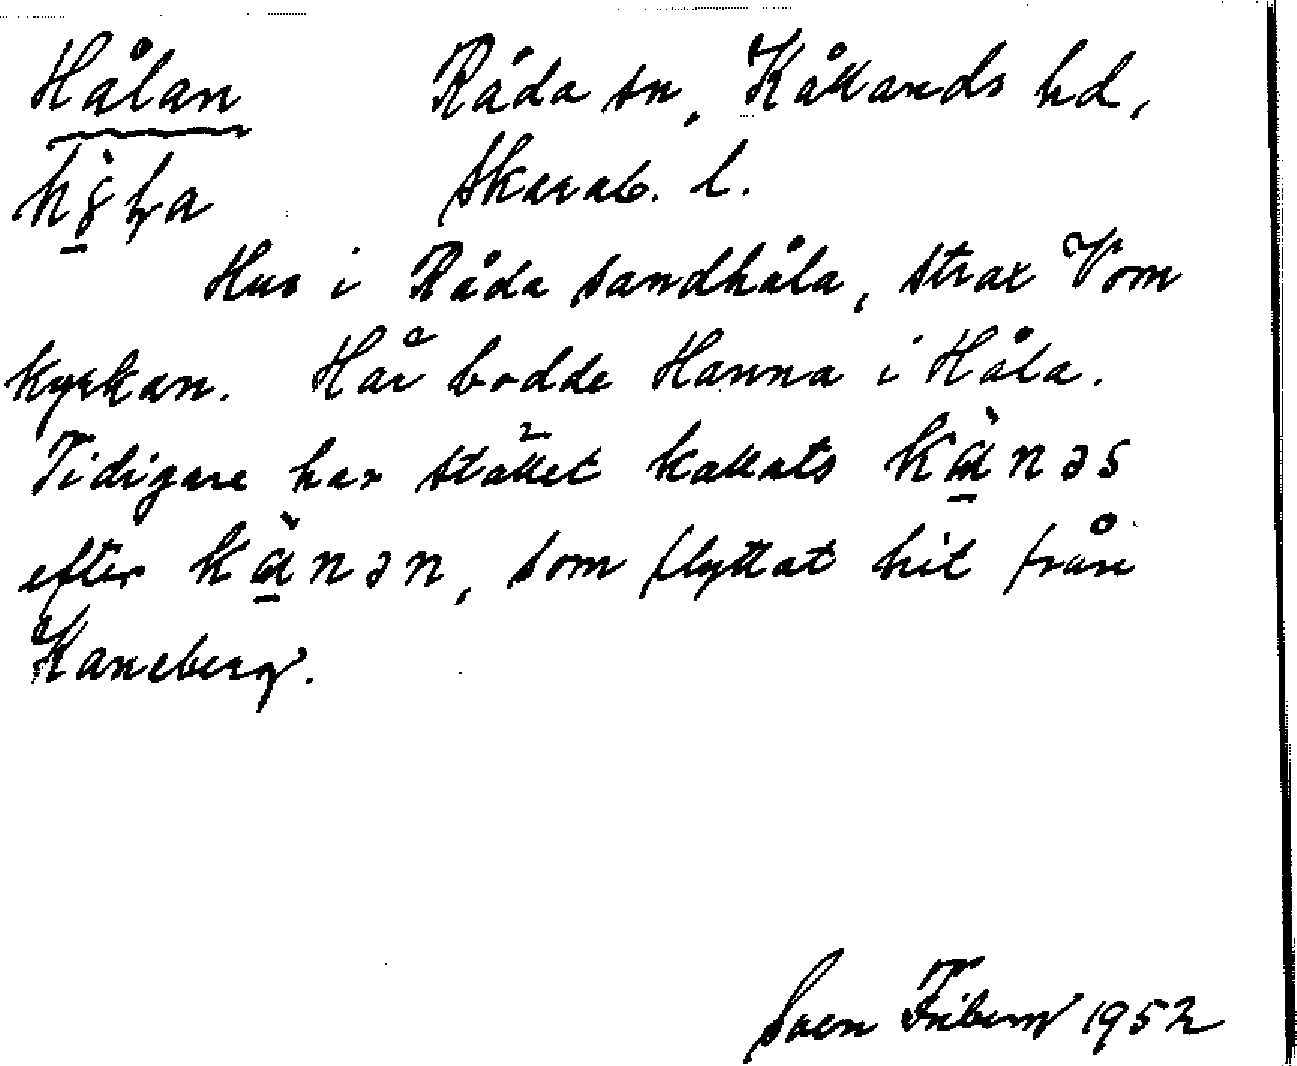 Hålan Råda sn, Kållands hd,
Skarab. l.
Hus i Råda sandhåla, strax V om
kyrkan. Här bodde Hanna i Håla.
Tidigare har stället kallats kànəs
efter kànən, som flyttat hit från
Kaneberg.
Sven Friberg 1952